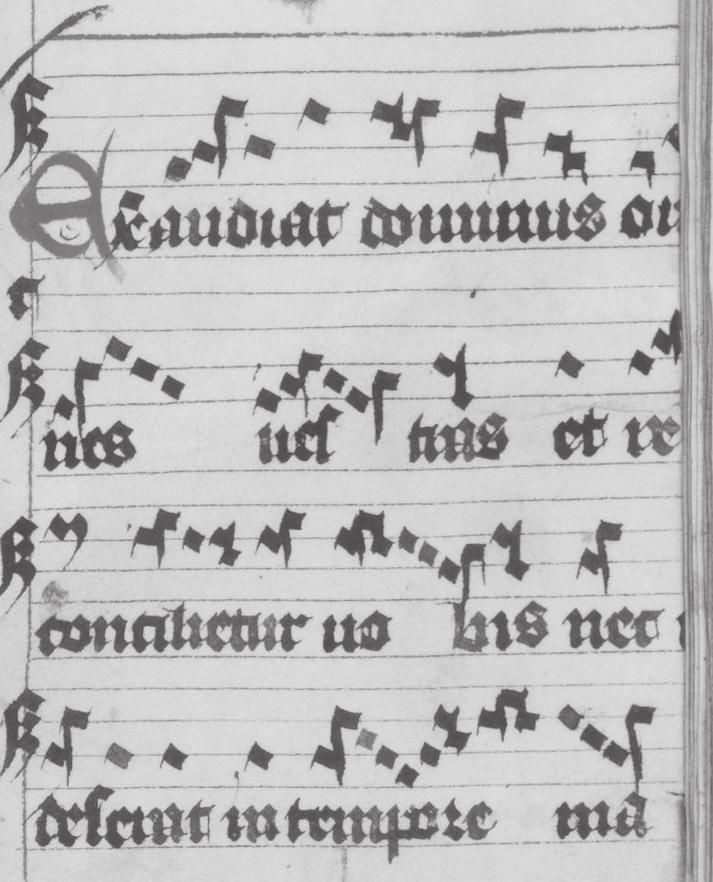 Exaudiat dominus or
nes ues tras et re
concilietur uo bis nec
deserat in tempore ma